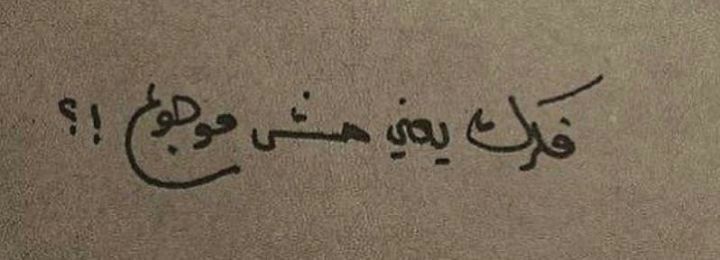 فكرك يعني مش موجوع !؟